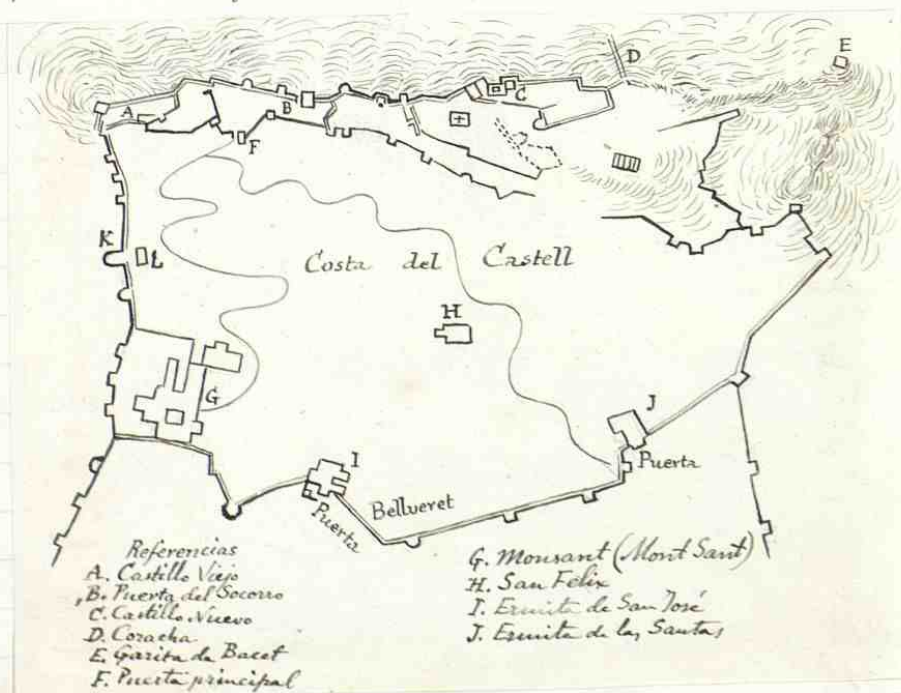 D
E
A
B
C
F
K
L
Costa del Castell
H
G
J
I
Puerta
Bellveret
Puerta
Referencias
A. Castillo Viejo
B. Puerta del Socorro
C. Castillo Nuevo
D. Coracha
E. Garita de Bacet
F. Puerta principal
G. Monsant (Mont Sant)
H. San Félix
I. Ermita de San José
J. Ermita de las Santas